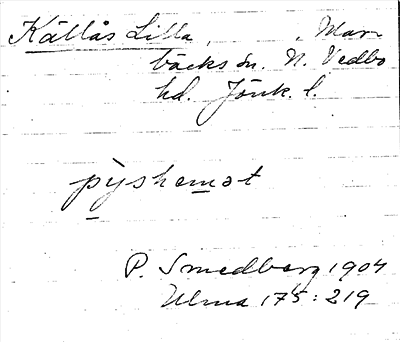 Källås Lilla, Mar-
bäcks sn. N. Vedbo
hd. Jönk. l.
pyshemət
P. Smedberg 1904
Ulma 175:219